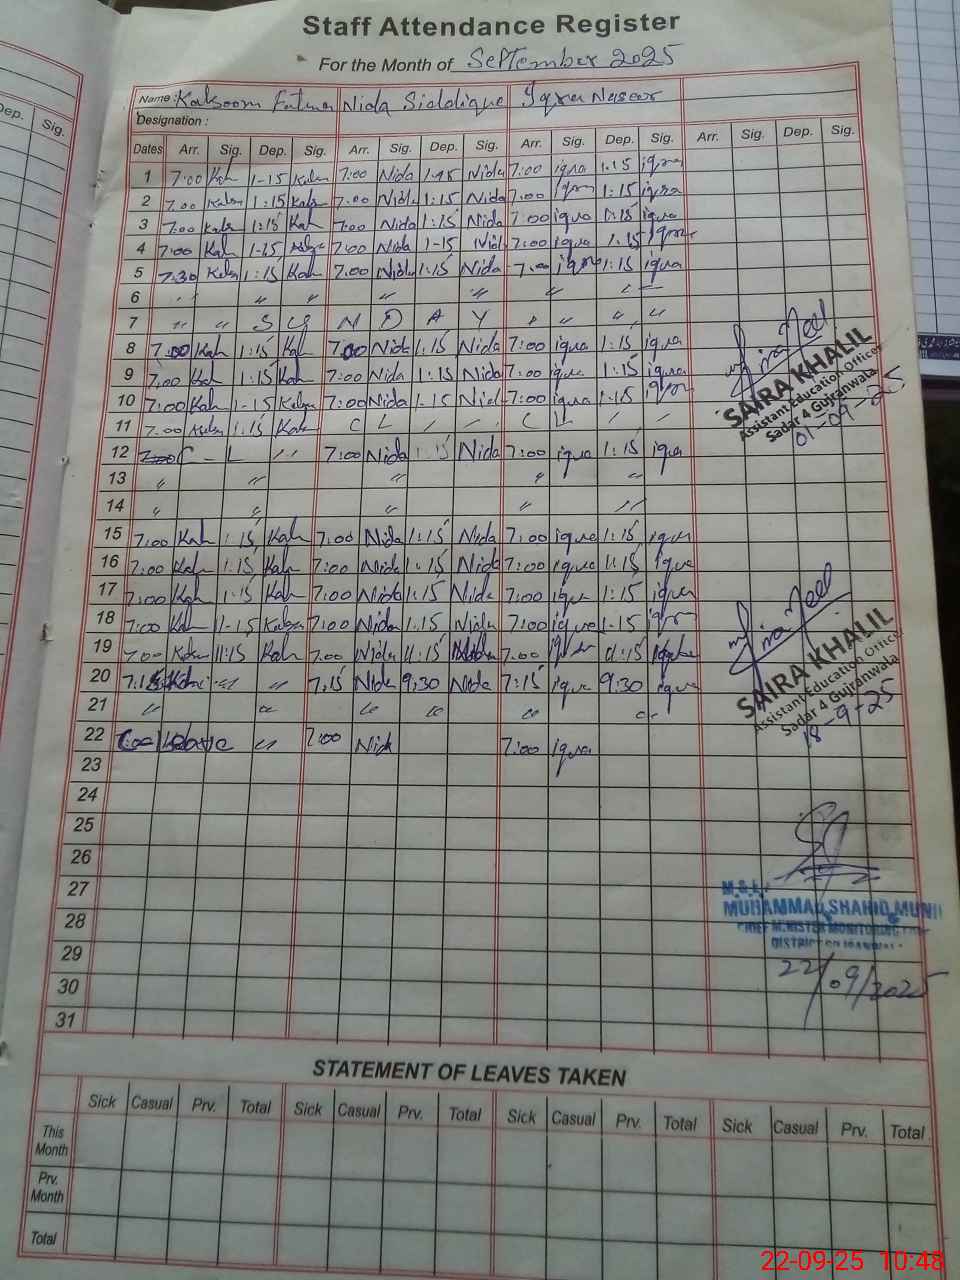 Staff Attendance Register
For the Month of September 2025
Dep. Sig.
Name: Kalsoom Fatima Nida Siddique Iqra Naseer
Designation :
Dates Arr. Sig. Dep. Sig. Arr. Sig. Dep. Sig. Arr. Sig. Dep. Sig. Arr. Sig. Dep. Sig.
1 7:00 Kah 1-15 Kalsm 7:00 Nida 1:15 Nida 7:00 iqra 1:15 iqra
2 7:00 Kalsm 1:15 Kalsm 7:00 Nida 1:15 Nida 7:00 iqra 1:15 iqra
3 7:00 Kalsm 1:15 Kah 7:00 Nida 1:15 Nida 7:00 iqra 1:15 iqra
4 7:00 Kah 1-15 7:00 Nida 1-15 Nida 7:00 iqra 1:15 iqra
5 7:30 Kalsm 1:15 Kah 7:00 Nida 1:15 Nida 7:00 iqra 1:15 iqra
6 " " " " " " "
7 " " S U N D A Y " " " "
8 7:00 Kah 1:15 Kah 7:00 Nida 1:15 Nida 7:00 iqra 1:15 iqra
9 7:00 Kah 1:15 Kah 7:00 Nida 1:15 Nida 7:00 iqra 1:15 iqra
10 7:00 Kah 1-15 Kalsm 7:00 Nida 1-15 Nida 7:00 iqra 1:15 iqra
11 7:00 Kalsm 1:15 Kah C L / / C L / /
12 C - L " 7:00 Nida 1:15 Nida 7:00 iqra 1:15 iqra
13 " " " " "
14 " " " " "
15 7:00 Kah 1:15 Kah 7:00 Nida 1:15 Nida 7:00 iqra 1:15 iqra
16 7:00 Kah 1:15 Kah 7:00 Nida 1:15 Nida 7:00 iqra 1:15 iqra
17 7:00 Kah 1:15 Kah 7:00 Nida 1:15 Nida 7:00 iqra 1:15 iqra
18 7:00 Kah 1-15 Kalsm 7:00 Nida 1:15 Nida 7:00 iqra 1-15 iqra
19 7:00 11:15 Kah 7:00 Nida 11:15 Nida 7:00 iqra 11:15 iqra
20 7:15 " " 7:15 Nida 9:30 Nida 7:15 iqra 9:30 iqra
21 " " " " " "
22 7:00 " 7:00 Nida 7:00 iqra
23
24
25
26
27
28
29
30
31
SAIRA KHALIL
Assistant Education Officer
Sadar 4 Gujranwala
01-09-25
SAIRA KHALIL
Assistant Education Officer
Sadar 4 Gujranwala
18-9-25
MUHAMMAD SHAHID MUNI
CHIEF MINISTER MONITORING
22/09/2025
STATEMENT OF LEAVES TAKEN
Sick Casual Prv. Total Sick Casual Prv. Total Sick Casual Prv. Total Sick Casual Prv. Total
This Month
Prv. Month
Total
22-09-25 10:48